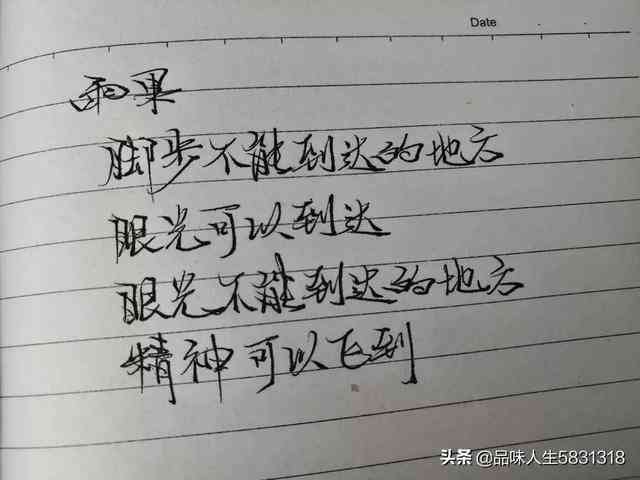 Date
雨果
脚步不能到达的地方
眼光可以到达
眼光不能到达的地方
精神可以飞到
头条 @品味人生5831318